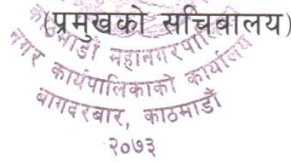 (प्रमुखको सचिवालय)
काठमाडौँ महानगरपालिका
नगर कार्यपालिकाको कार्यालय
बागदरबार, काठमाडौँ
२०७३